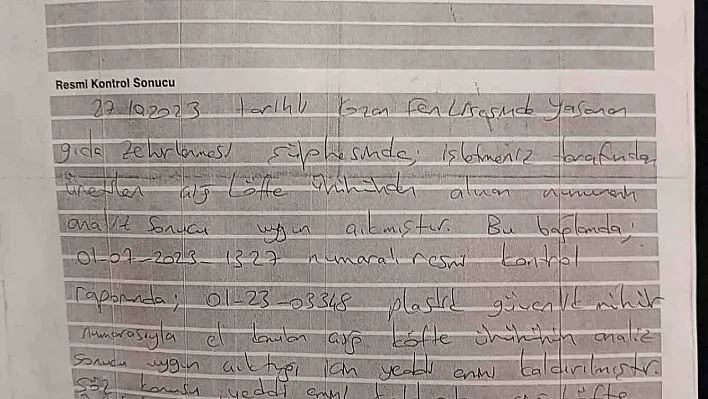 Resmi Kontrol Sonucu
27.10.2023 tarihli Kozan Fen Lisesinde yaşanan
gıda zehirlenmesi şüphesinde, işletmeniz tarafından
üretilen çiğ köfte ürününden alınan numunenin
analiz sonucu uygun çıkmıştır. Bu bağlamda;
01-07-2023-1327 numaralı resmi kontrol
raporunda; 01-23-03348 plastik güvenlik mühür
numarasıyla el konulan çiğ köfte ürününün analiz
sonucu uygun çıktığı için yeddi emin kaldırılmıştır.
Söz konusu yeddi emin köfte